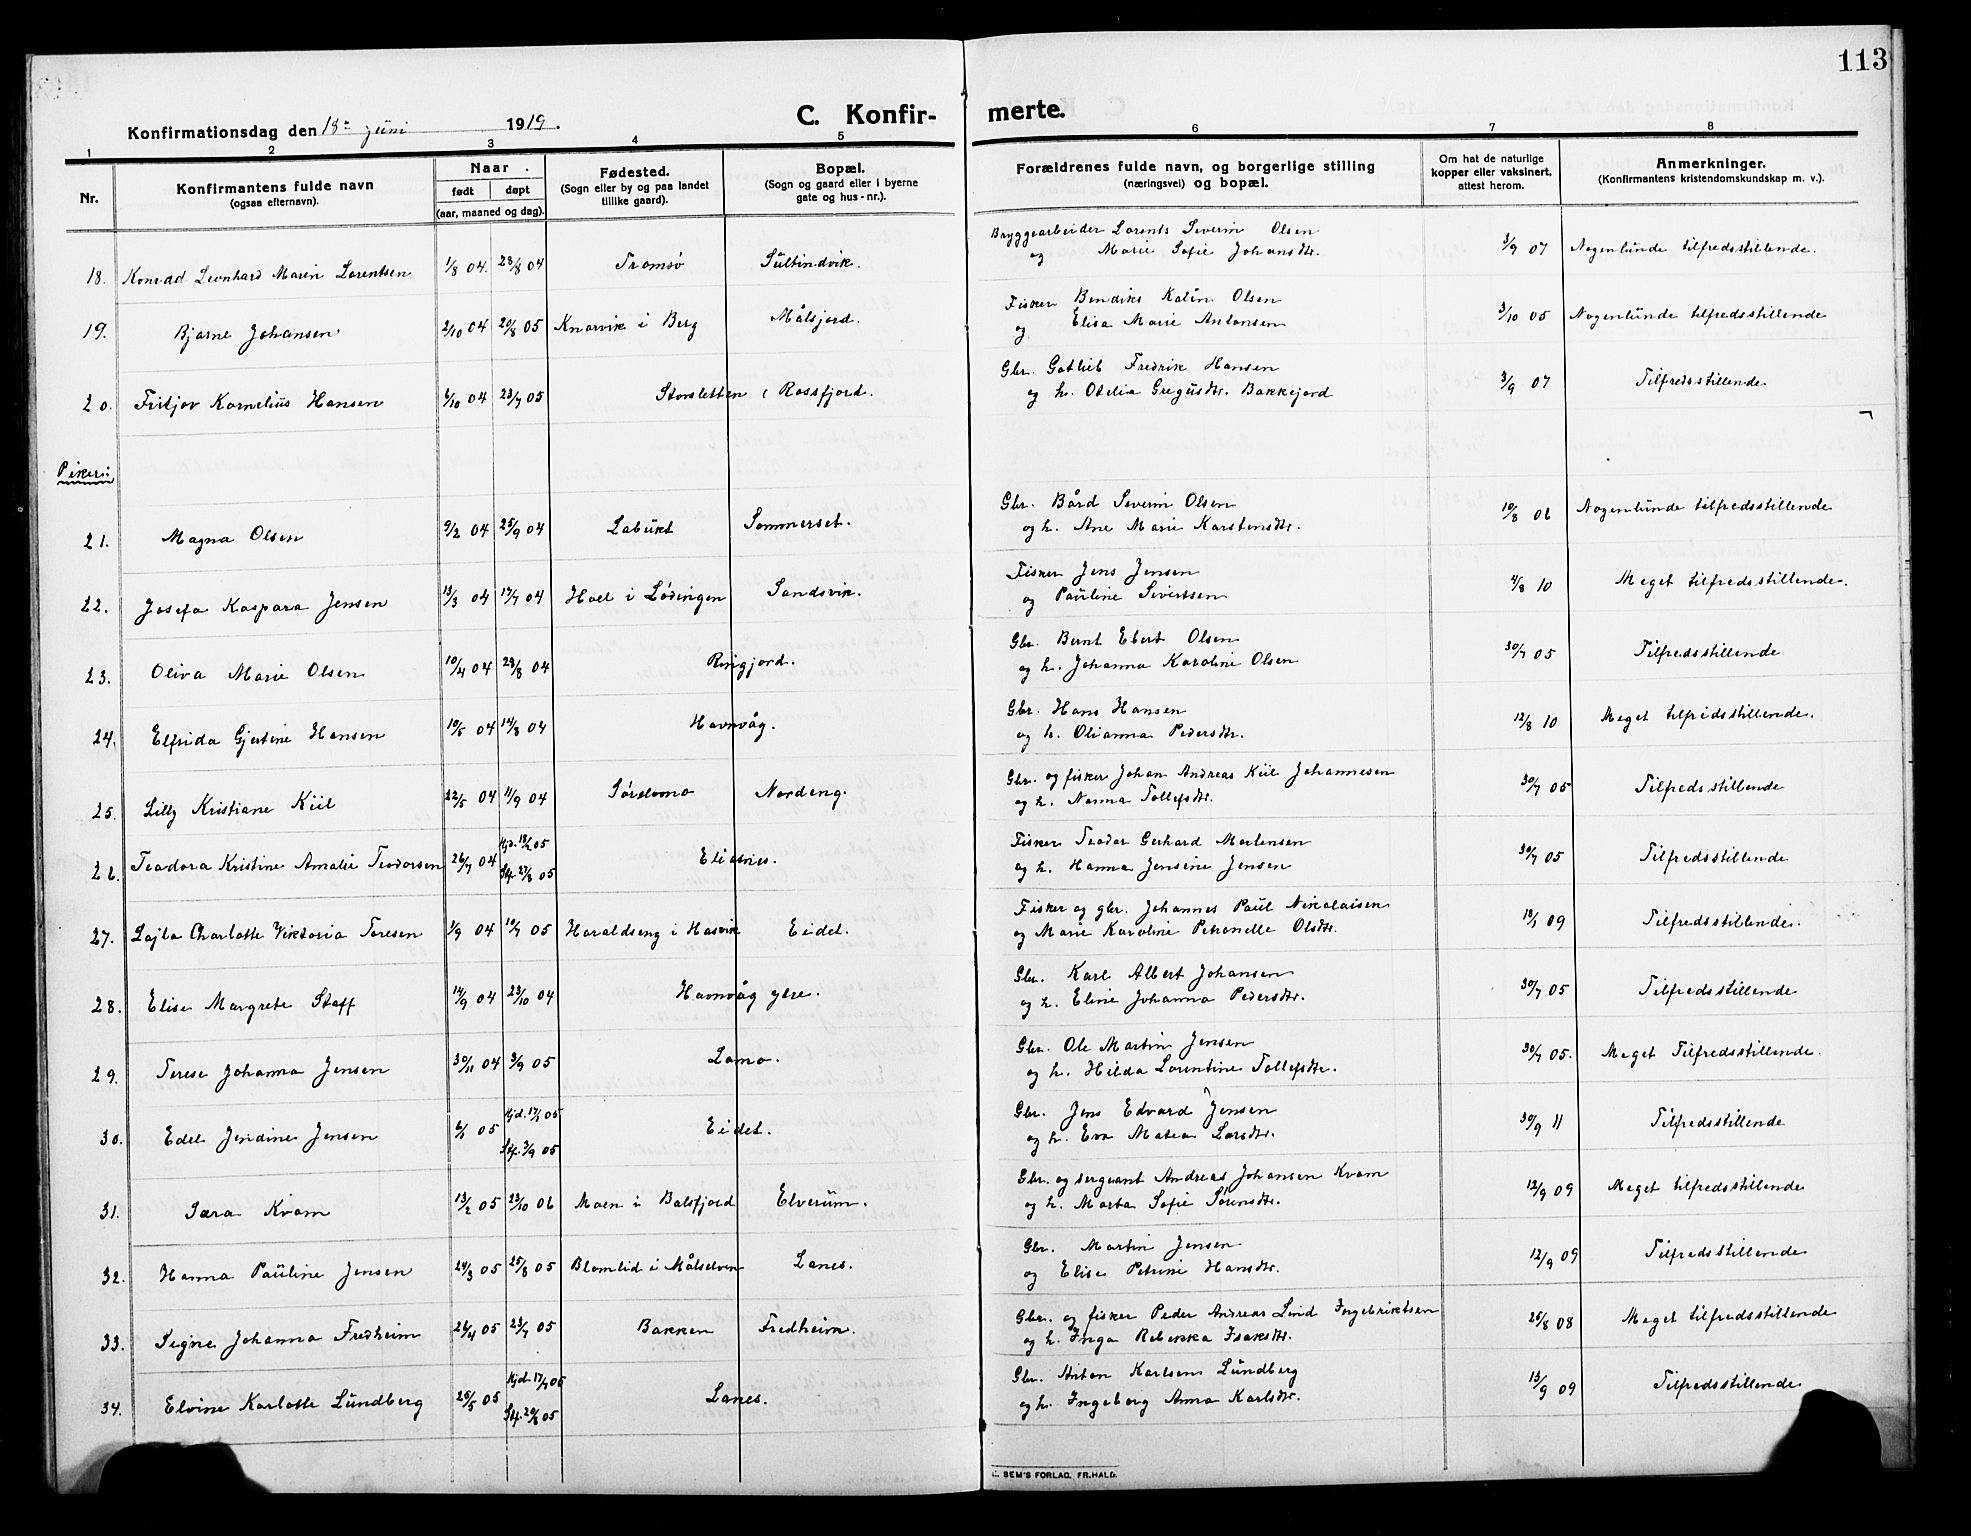 113
Konfirmationsdag den 18de juni 1919.
C. Konfir-merte.
1 2 3 4 5 6 7 8
Nr.
Konfirmantens fulde navn
(ogsaa efternavn).
Naar
født døpt
(aar, maaned og dag).
Fødested.
(Sogn eller by og paa landet
tillike gaard).
Bopæl.
(Sogn og gaard eller i byerne
gate og hus-nr.).
Forældrenes fulde navn, og borgerlige stilling
(næringsvei) og bopæl.
Om hat de naturlige
kopper eller vaksinert,
attest herom.
Anmerkninger.
(Konfirmantens kristendomskundskap m. v.).
18. Konrad Leonhard Marin Lorentsen 1/8 04. 28/8 04 Tromsø Sultindvik. Bryggearbeider Lorents Severin Olsen
og Marie Sofie Johansdtr. 3/9 07 Nogenlunde tilfredsstillende.
19. Bjarne Johansen 2/10 04 20/8 05 Knarvik i Berg Målsjord. Fisker Bendiks Kolin Olsen
og Elisa Marie Antonsen 3/10 05 Nogenlunde tilfredsstillende
20. Fritjov Kornelius Hansen 6/10 04 23/7 05 Storsletten i Rossfjord. Gbr. Gotlieb Fredrik Hansen
og h. Otelia Gregusdtr. Bakkejord 3/9 07 Tilfredsstillende
Piker:
21. Magna Olsen 9/2 04 25/9 04 Labukt Sommerset. Gbr. Bård Severin Olsen
og h. Ane Marie Karstensdtr. 10/8 06 Nogenlunde tilfredsstillende
22. Josefa Kaspara Jensen 13/3 04 17/7 04 Hoel i Lødingen Sandsvik. Fisker Jens Jensen
og Pauline Sivertsen 4/8 10 Meget tilfredsstillende.
23. Oliva Marie Olsen 10/4 04 28/8 04 Ringjord. Gbr. Bernt Ebert Olsen
og h. Johanna Karoline Olsen 30/7 05 Tilfredsstillende
24. Elfrida Gjertine Hansen 10/5 04 14/8 04 Havnvåg. Gbr. Hans Hansen
og h. Olianna Pedersdtr. 12/8 10 Meget tilfredsstillende.
25. Lilly Kristiane Kiil 22/5 04 11/9 04 Nordeng. Gbr. og fisker Johan Andreas Kiil Johannesen
og h. Norma Tollefsdtr. 30/7 05 Tilfredsstillende
26. Teodora Kristine Amalie Teodorsen 26/7 04 Hjd. 18/2 05
Stf. 27/8 05 Elisnes. Fisker Teodor Gerhard Mortensen
og h. Hanna Jensine Jensen 30/7 05 Tilfredsstillende
27. Lajla Charlotte Viktoria Toresen 1/9 04 10/7 05 Haraldseng i Hasvik Eidet. Fisker og gbr. Johannes Paul Nikolaisen
og Marie Karoline Petronelle Olsdtr. 18/1 09 Tilfredsstillende.
28. Elise Margrete Staff 14/9 04 23/10 04 Havnvåg ytre. Gbr. Karl Albert Johansen
og h. Eline Johanna Pedersdtr. 30/7 05 Tilfredsstillende
29. Terese Johanna Jensen 30/11 04 3/9 05 Lamo. Gbr. Ole Martin Jensen
og h. Hilda Lorentine Tollefsdtr. 30/7 05. Meget Tilfredsstillende.
30. Edel Jendine Jensen 6/1 05 Hjd. 17/1 05
Stf. 3/9 05 Eidet. Gbr. Jens Edvard Jensen
og h. Eva Matea Larsdtr. 30/9 11 Tilfredsstillende
31. Sara Kvam 13/2 05 23/10 06 Moen i Balsfjord Elverum. Gbr. og sergeant Andreas Johansen Kvam
og h. Marta Sofie Sørensdtr. 12/9 09 Meget tilfredsstillende
32. Hanna Pauline Jensen 24/3 05 25/8 05 Blomlid i Målselven Lanes. Gbr. Martin Jensen
og Elise Petrine Hansdtr. 12/9 09 Tilfredsstillende
33. Signe Johanna Fredheim 26/4 05 23/7 05 Bakken Fredheim. Gbr. og fisker Peder Andreas Lind Ingebriktsen
og h. Inga Rebekka Isaksdtr. 25/8 08 Meget tilfredsstillende
34. Elvine Karlotte Lundberg 25/5 05 Hjd. 17/7 05
Stf. 20/8 05 Lanes. Gbr. Anton Karlsen Lundberg
og h. Ingeborg Anna Karlsdtr. 13/9 09 Tilfredsstillende
SEM'S FORLAG, FR.HALD.